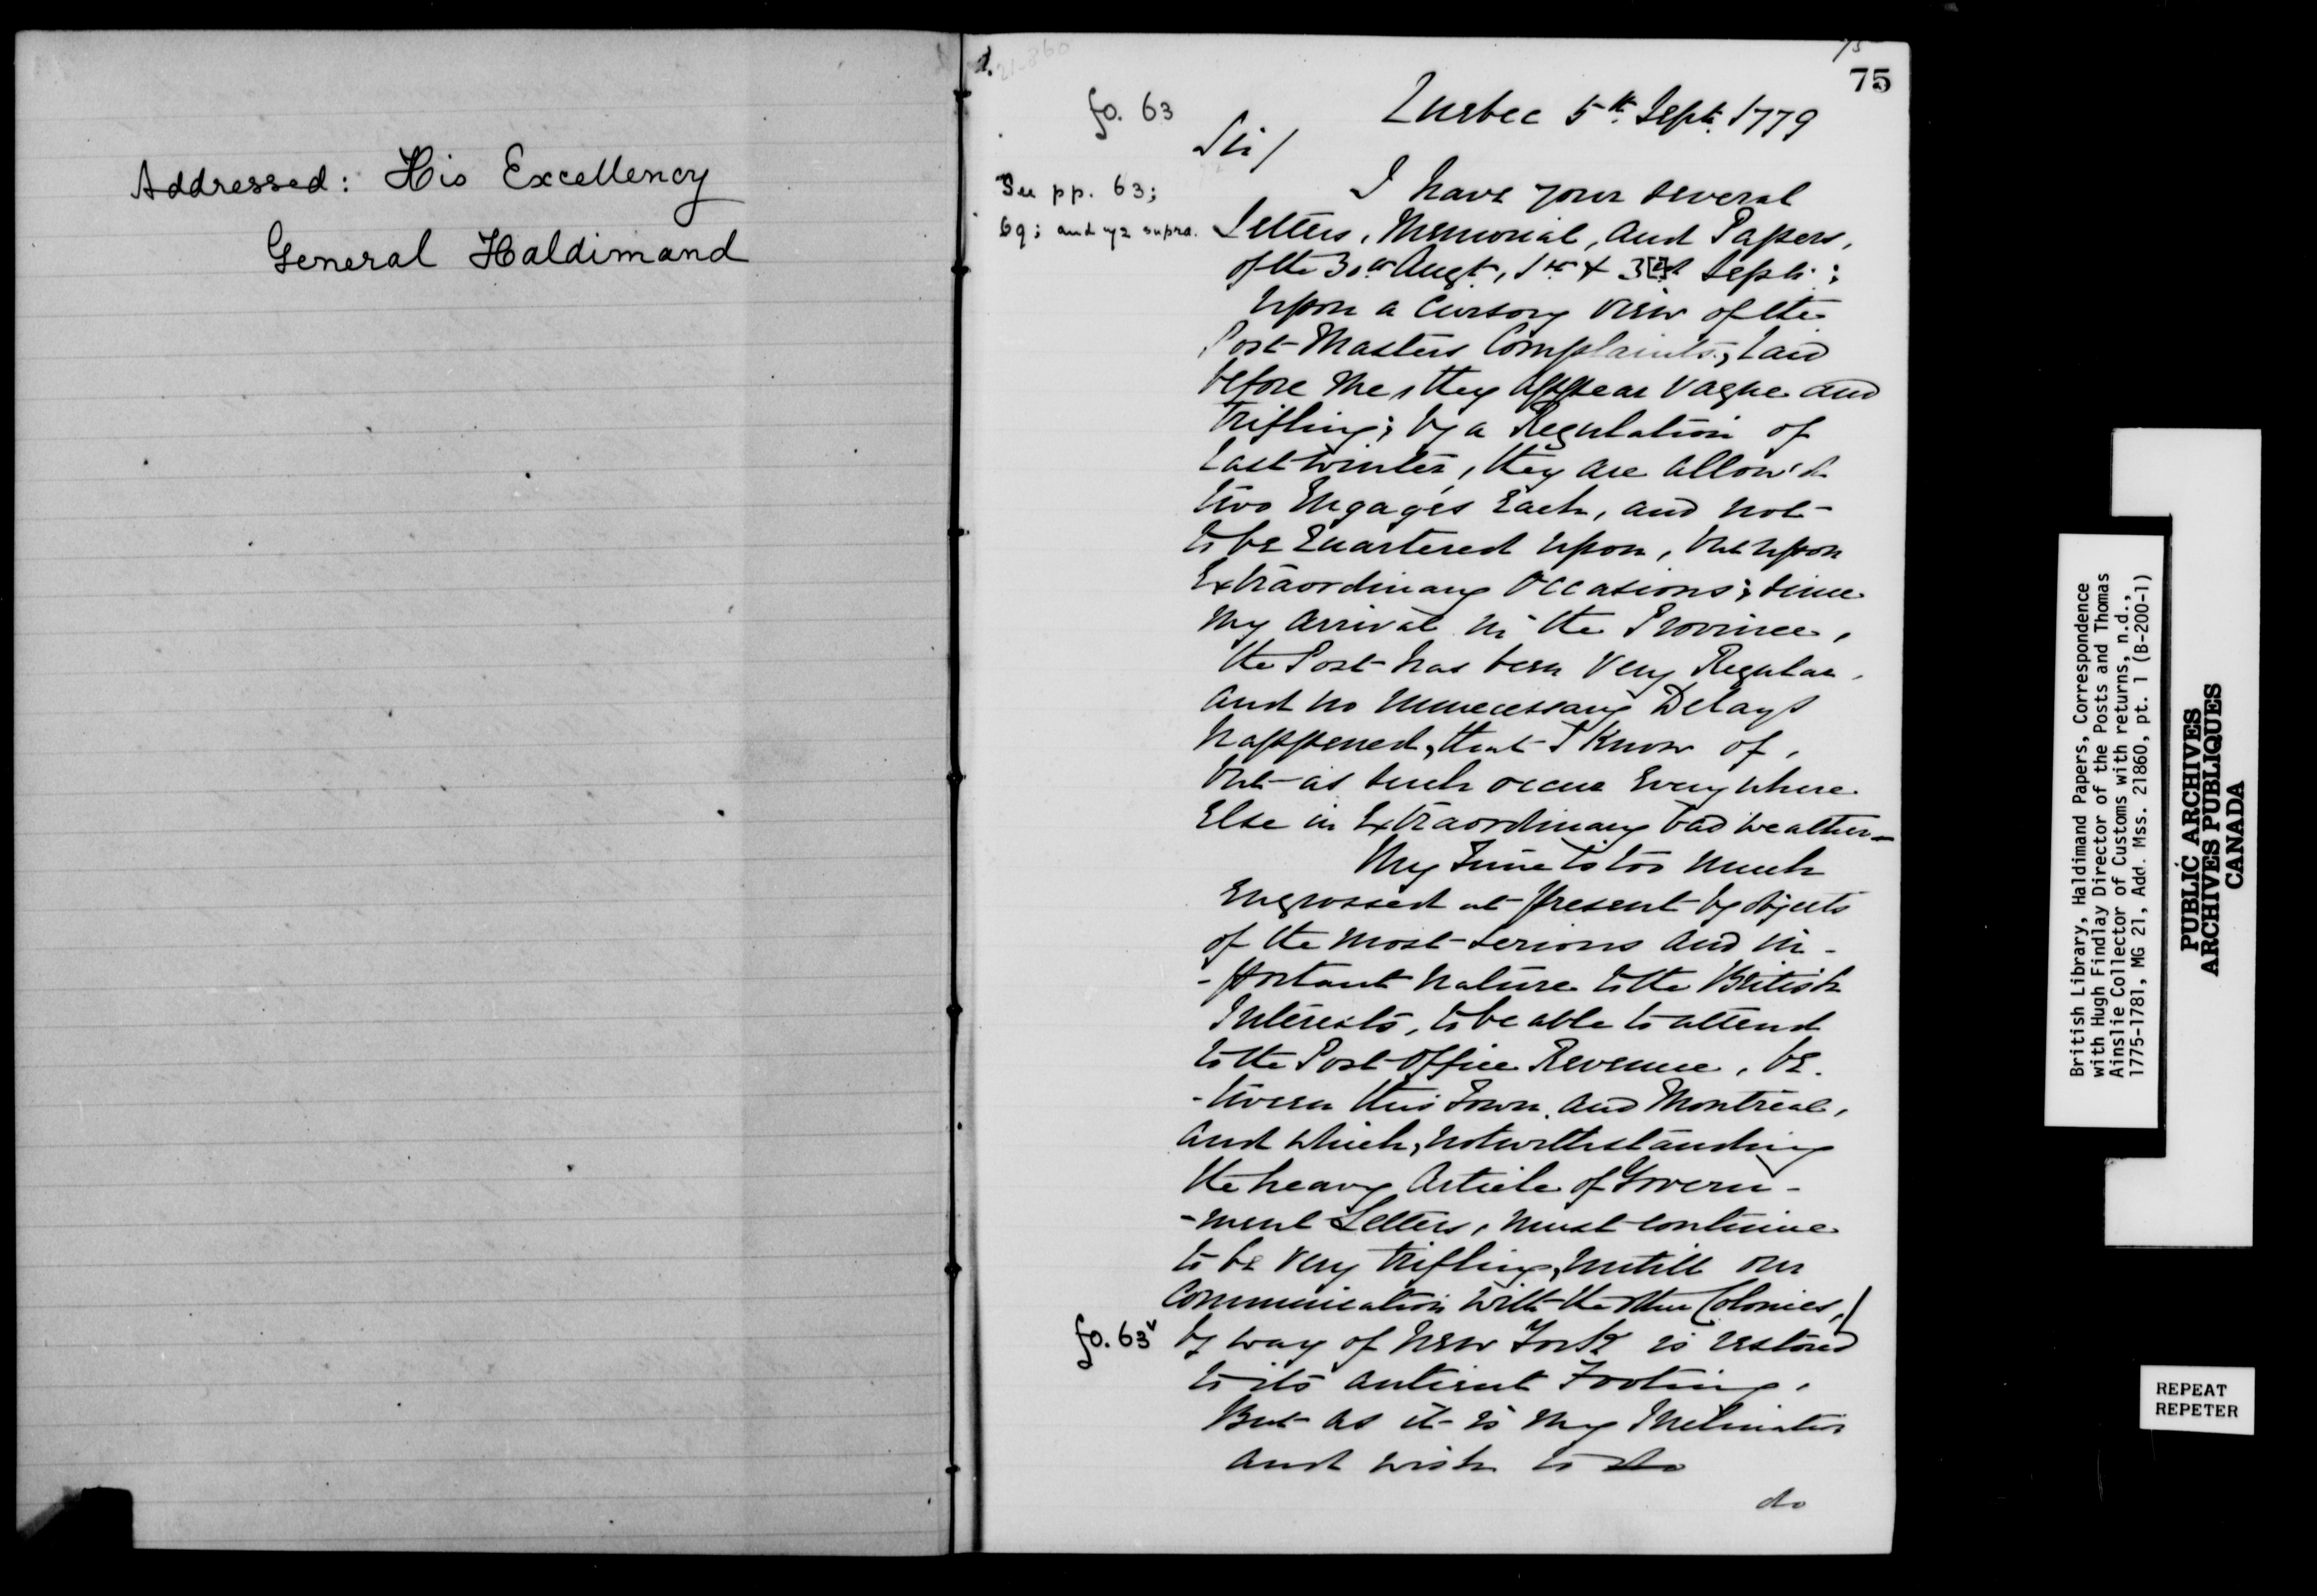 Addressed: His Excellency
General Haldimand
1.
21-860
75
75
fo. 63
Quebec 5th. Septr. 1779
Sir/
See pp. 63;
69; and 72 supra.
I have your several
Letters, Memorial, and Papers,
of the 30th Augt., 1st & 3[r]d Septr.;
Upon a Cursory View of the
Post-Masters Complaints, Laid
before Me, they appear Vague and
trifling; by a Regulation of
Last Winter, they are allow'd
two Engagés Each, and not
to be Quartered upon, but upon
Extraordinary Occasions; since
My Arrival in the Province,
the Post has been Very Regular,
and no unnecessary Delays
happened, that I Know of,
but as such occur Every where
Else in Extraordinary bad weather—
My Time is too Much
Engrossed at present by objects
of the most serious and im-
-portant Nature to the British
Interests, to be able to attend
to the Post Office Revenue, be-
-tween this Town and Montreal,
and which, notwithstanding
the heavy Article of Govern-
-ment Letters, must continue
to be Very trifling, untill our
Communication with the other Colonies,
fo. 63v
by way of New York is restored
to its antient Footing.
But as it is My Inclination
and wish to do
do
British Library, Haldimand Papers, Correspondence
with Hugh Findlay Director of the Posts and Thomas
Ainslie Collector of Customs with returns, n.d.,
1775-1781, MG 21, Add. Mss. 21860, pt. 1 (B-200-1)
PUBLIC ARCHIVES
ARCHIVES PUBLIQUES
CANADA
REPEAT
REPETER